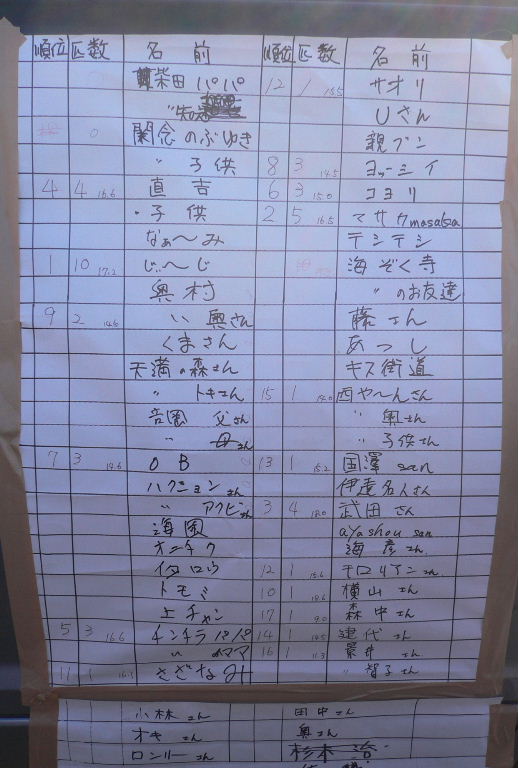 順位 匹数 名前 順位 匹数 名前
柴田 パパ 12 1 15.5 サオリ
〃 Uさん
0 関念 のぶゆき 親ブン
〃 子供 8 3 14.5 ヨッシイ
4 4 16.6 直吉 6 3 15.0 コヨリ
・子供 2 5 16.5 マサカ
なぁ〜み テンテン
1 10 17.2 じぃ〜じ 海ぞく寺
奥村 〃 のお友達
9 2 14.6 〃 奥さん 藤さん
くまさん あつし
天満の森さん キス街道
〃 トキさん 15 1 14.0 西や〜んさん
音園 父さん 〃 奥さん
〃 母さん 〃 子供さん
7 3 14.6 OB 13 1 15.2 国澤 san
ハクション さん 伊達名人さん
〃 アクビさん 3 4 武田 さん
海園 ayashou san
オニチク 海彦さん
イタロウ 12 1 15.6 さん
トモミ 10 1 横山 さん
エチャン 17 1 9.0 森中 さん
5 3 16.6 チンチラパパ 14 1 14.5 建代 さん
〃 ママ 16 1 11.3 景井 さん
11 1 さざなみ 〃 智子さん
小林 さん 田中さん
オキ さん 奥さん
ロンリーさん 杉本